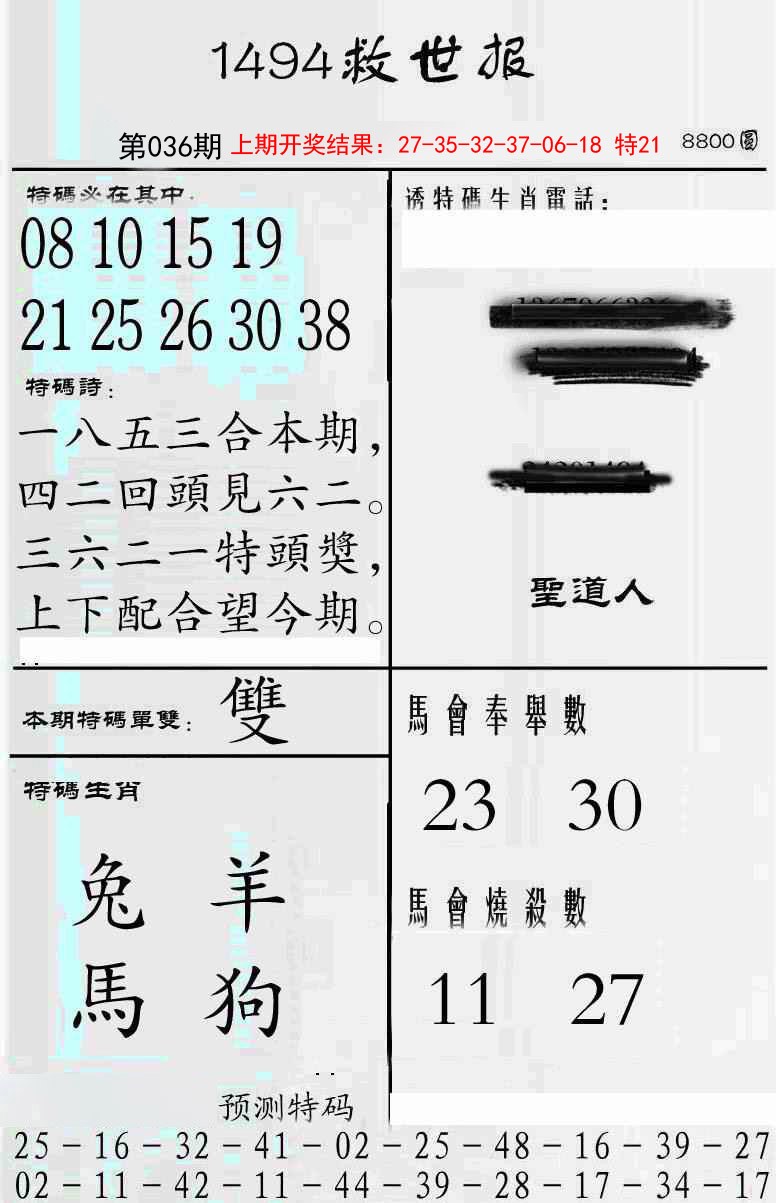 1494救世报
第036期 上期开奖结果：27-35-32-37-06-18 特21 8800圆
特碼必在其中：
08 10 15 19
21 25 26 30 38
特碼詩：
一八五三合本期，
四二回頭見六二。
三六二一特頭獎，
上下配合望今期。
透特碼生肖電話：
聖道人
本期特碼單雙： 雙
特碼生肖
兔 羊
馬 狗
馬會奉舉數
23 30
馬會燒殺數
11 27
预测特码
25－16－32－41－02－25－48－16－39－27
02－11－42－11－44－39－28－17－34－17